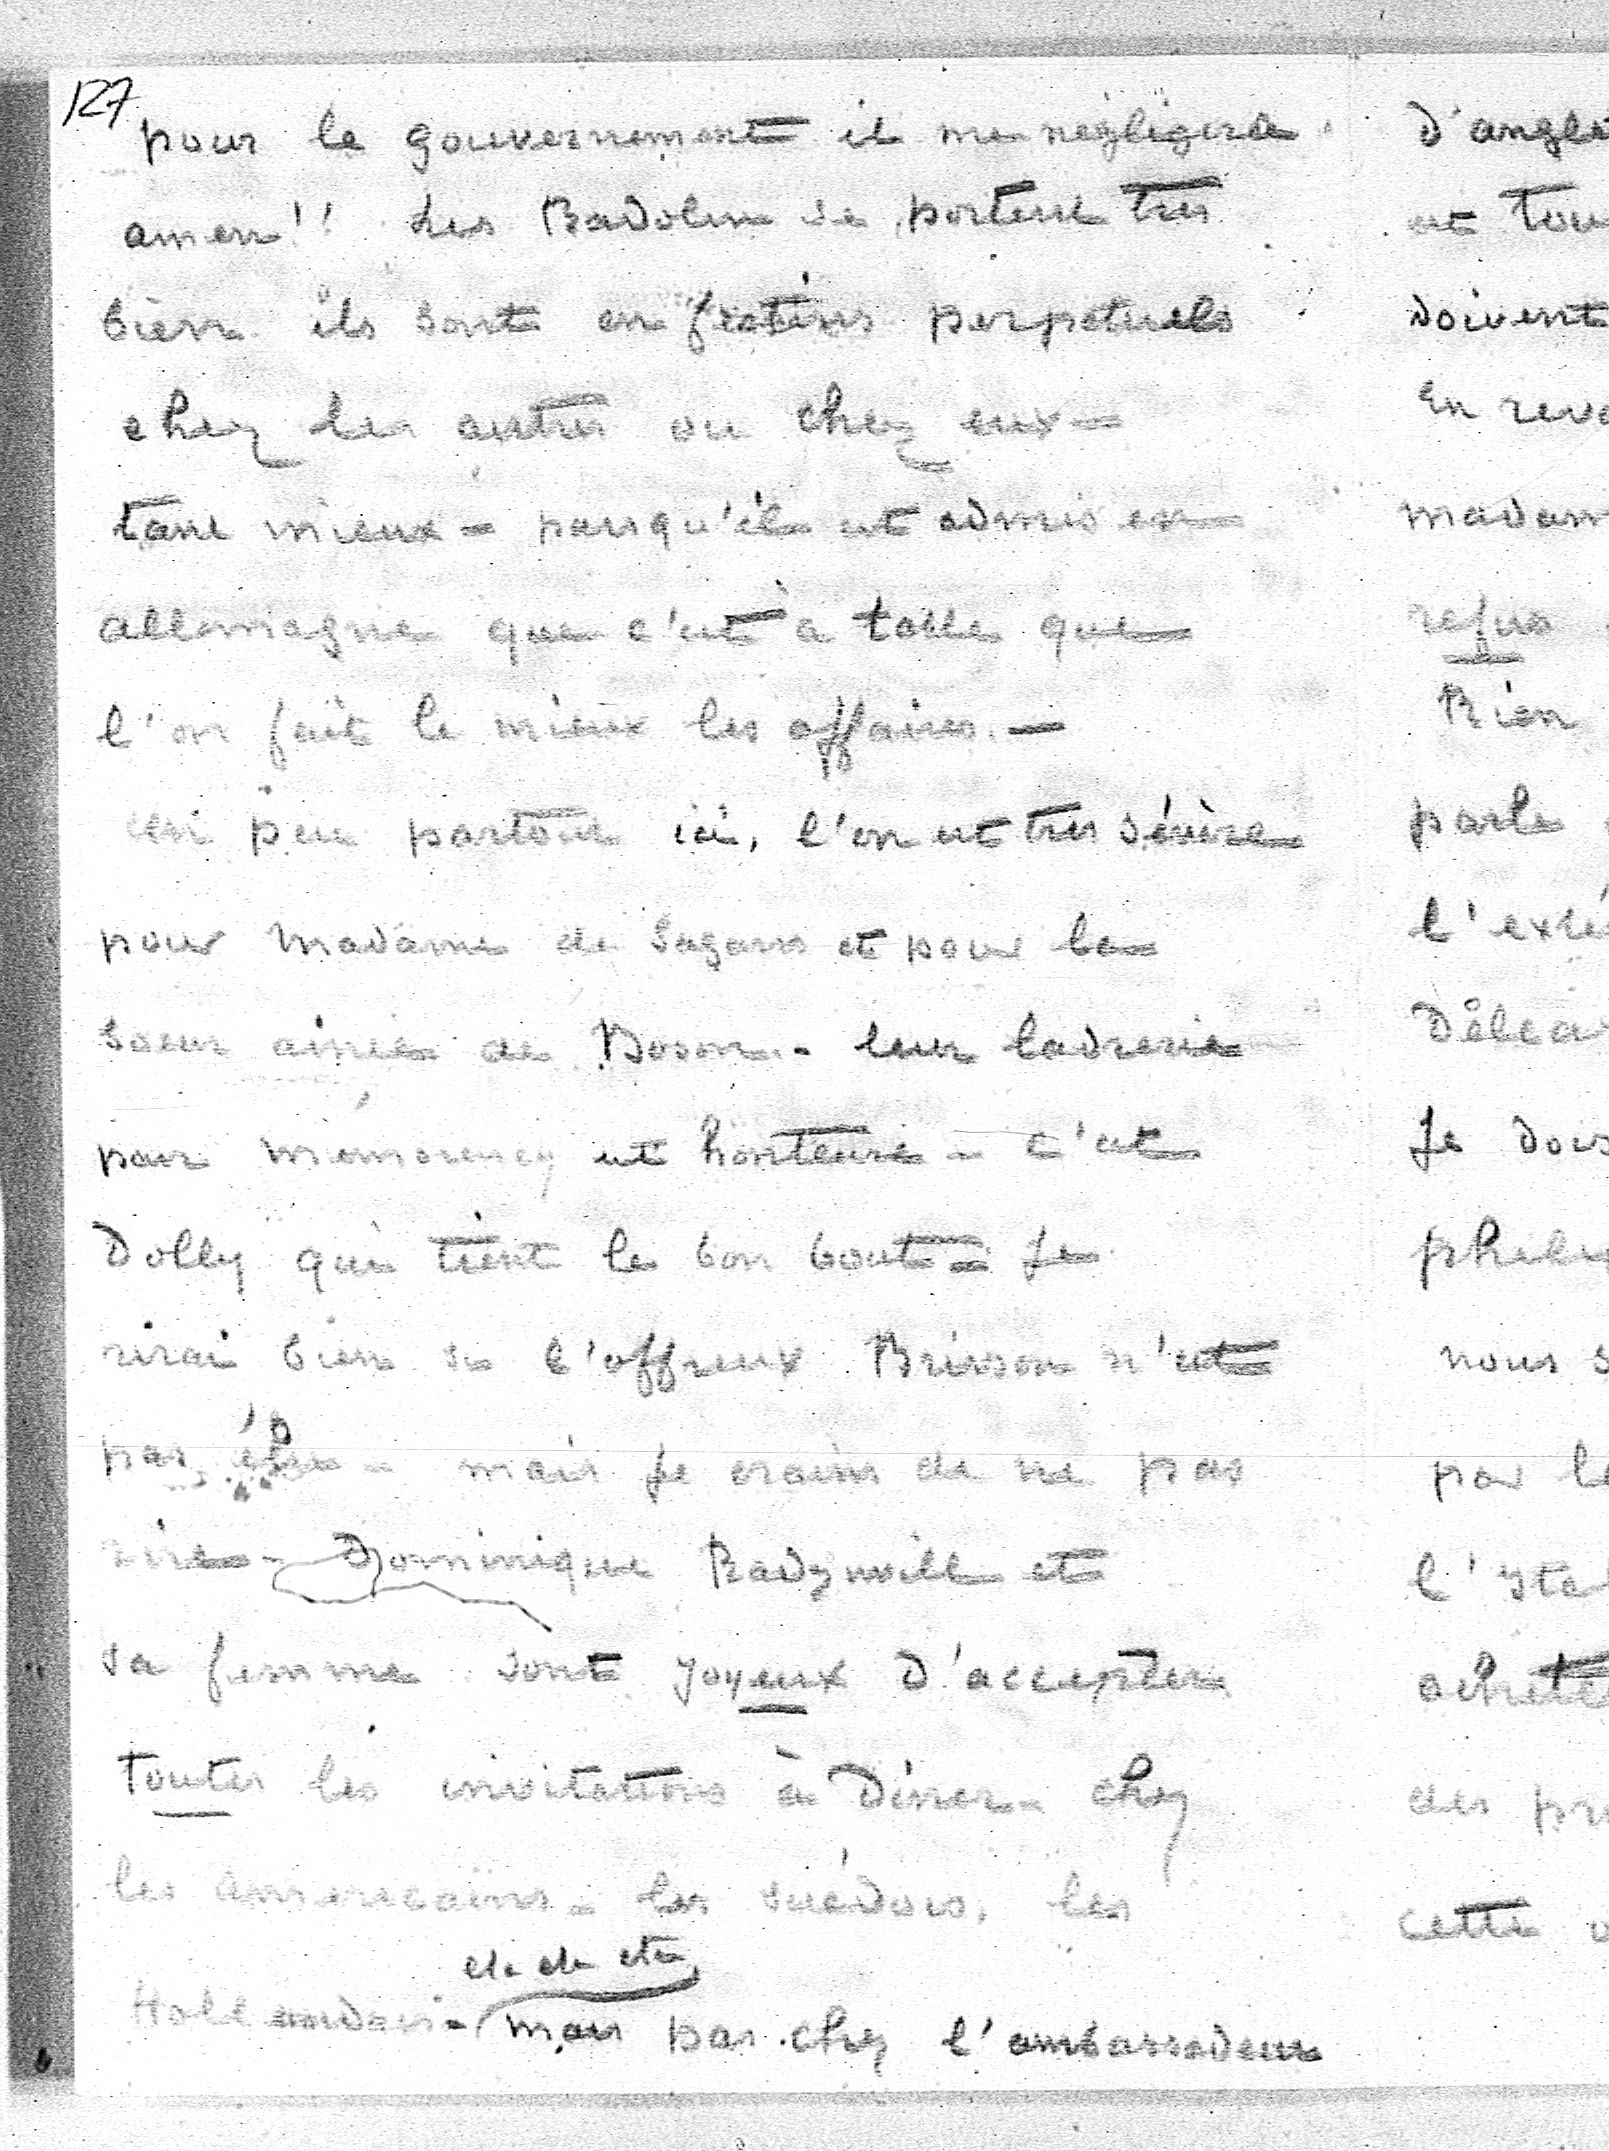 127
pour le gouvernement il me négligera
amen!! Les Radolin se portent très
bien ils sont en festins perpetuels
chez les autres ou chez eux =
tant mieux = puisqu'il est admis en
allemagne que c'est à table que
l'on fait le mieux les affaires. —
un peu partout ici, l'on est très sévère
pour Madame de Sagan et pour la
soeur ainée de Boson. - leur ladrerie
pour Mémorency est honteuse - c'est
Dolly qui tient le bon bout = Je
rirai bien si l'affreux Brisson n'est
pas élu - mais je crains de ne pas
rire - Dominique Radziwill et
sa femme sont joyeux d'accepter
toutes les invitations à Diner - chez
les américains - les suédois, les
etc etc etc
Hollandais - mais pas chez l'ambassadeur
d'angle
et tou
doivent
En reva
madam
refus
Rien
parle
l'exté
Délca
Je dois
phily
nous s
par le
l'Ital
acheté
des pr
cette